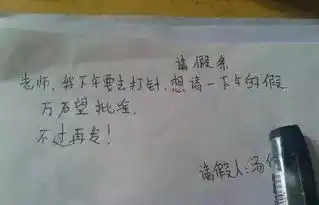 请假条
老师，我下午要去打针，想请一下午的假.
万万望批准，
不过再矣！
请假人：汤